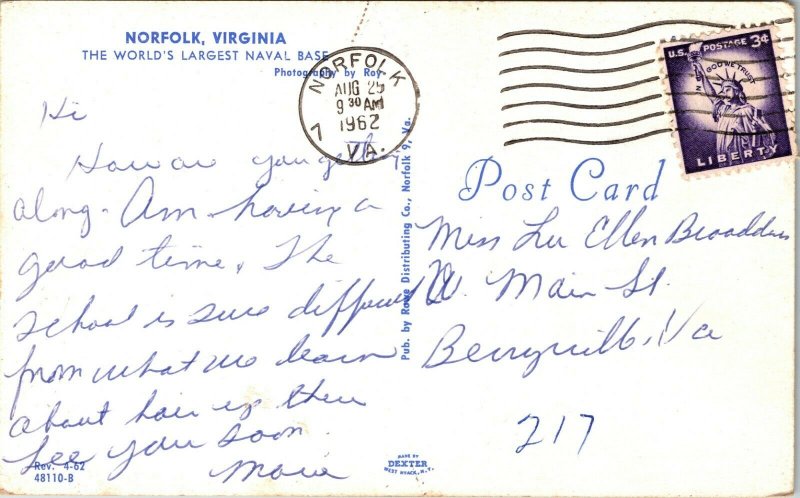 NORFOLK, VIRGINIA
THE WORLD'S LARGEST NAVAL BASE
Photography by Roy
NORFOLK
AUG 29
9 30 AM
1962
7 VA.
U.S. POSTAGE 3¢
IN GOD WE TRUST
LIBERTY
Post Card
Hi
How are you getting
along. Am having a
good time. The
school is sure different
from what we learn
about hair up there
See you soon.
Marie
Miss Lu Ellen Broaddus
W. Main St.
Berryville, Va
217
Pub. by Rowe Distributing Co., Norfolk 9, Va.
Rev. 4-62
48110-B
MADE BY
DEXTER
WEST NYACK, N.Y.